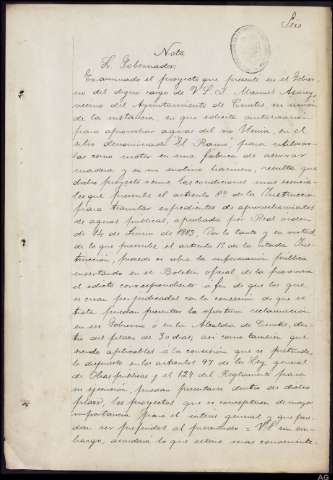 Nota
Sr. Gobernador:
Examinado el proyecto que presente en el Gobier-
no del digno cargo de V.S. D. Manuel
vecino del Ayuntamiento de Cenlle, en unión
de la instancia, en que solicita autorización
para aprovechar aguas del río en el
sitio denominado "El para utilizar-
las como motor en una fábrica de aserrar
madera y en un molino harinero, resulta que
dicho proyecto reune las condiciones mas esencia-
les que previene el artículo 1º de la Instrucción
para tramitar expedientes de aprovechamientos
de aguas públicas, aprobada por Real orden
de 14 de Junio de 1883. Por lo tanto y en virtud
de lo que previene el artículo 1º de la citada Ins-
trucción, procede se abra la información pública
insertando en el Boletín oficial de la provincia
el edicto correspondiente á fin de que los que
se crean perjudicados con la concesión de que se
trata puedan presentar la oportuna reclamación
en ese Gobierno ó en la Alcaldía de Cenlle, den-
tro del plazo de 30 dias; asi como tambien que
siendo aplicables á la concesión que se pretende,
lo dispuesto en los artículos 97 de la Ley general
de Obras públicas y el 127 del Reglamento para
su ejecución, puedan presentarse dentro de dicho
plazo, los proyectos que se conceptuen de mayor
importancia para el interes general y que pue-
dan ser preferidos al presentado = V.S. sin em-
bargo, acordará lo que estime mas conveniente.
AG